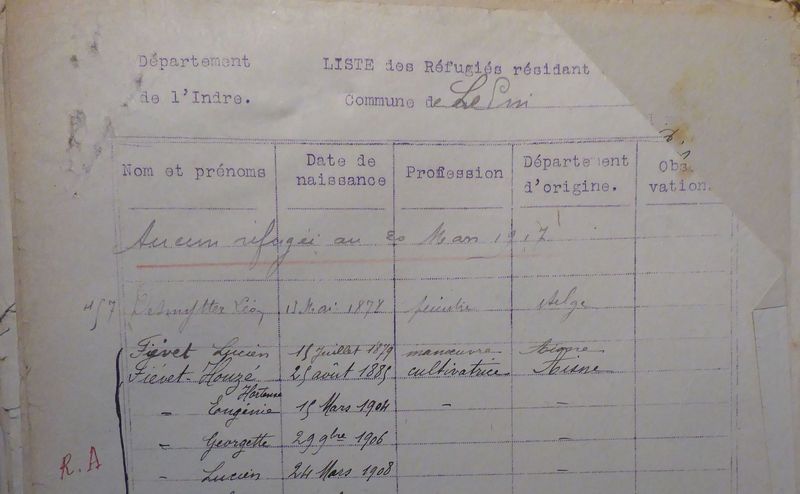 Département LISTE des Réfugiés résidant
de l'Indre. Commune de Le Pin
Nom et prénoms Date de naissance Profession Département d'origine. Obs. vation.
Aucun réfugié au 20 Mars 1917
457 Desmytter Léon 13 Mai 1878 peintre belge
Fiévet Lucien 15 Juillet 1879 manœuvre Aisne
Fiévet-Houzé 25 août 1885 cultivatrice Aisne
Hortense
" Eugénie 15 Mars 1904 - -
" Georgette 29 9bre 1906 -
R.A " Lucien 24 Mars 1908 -